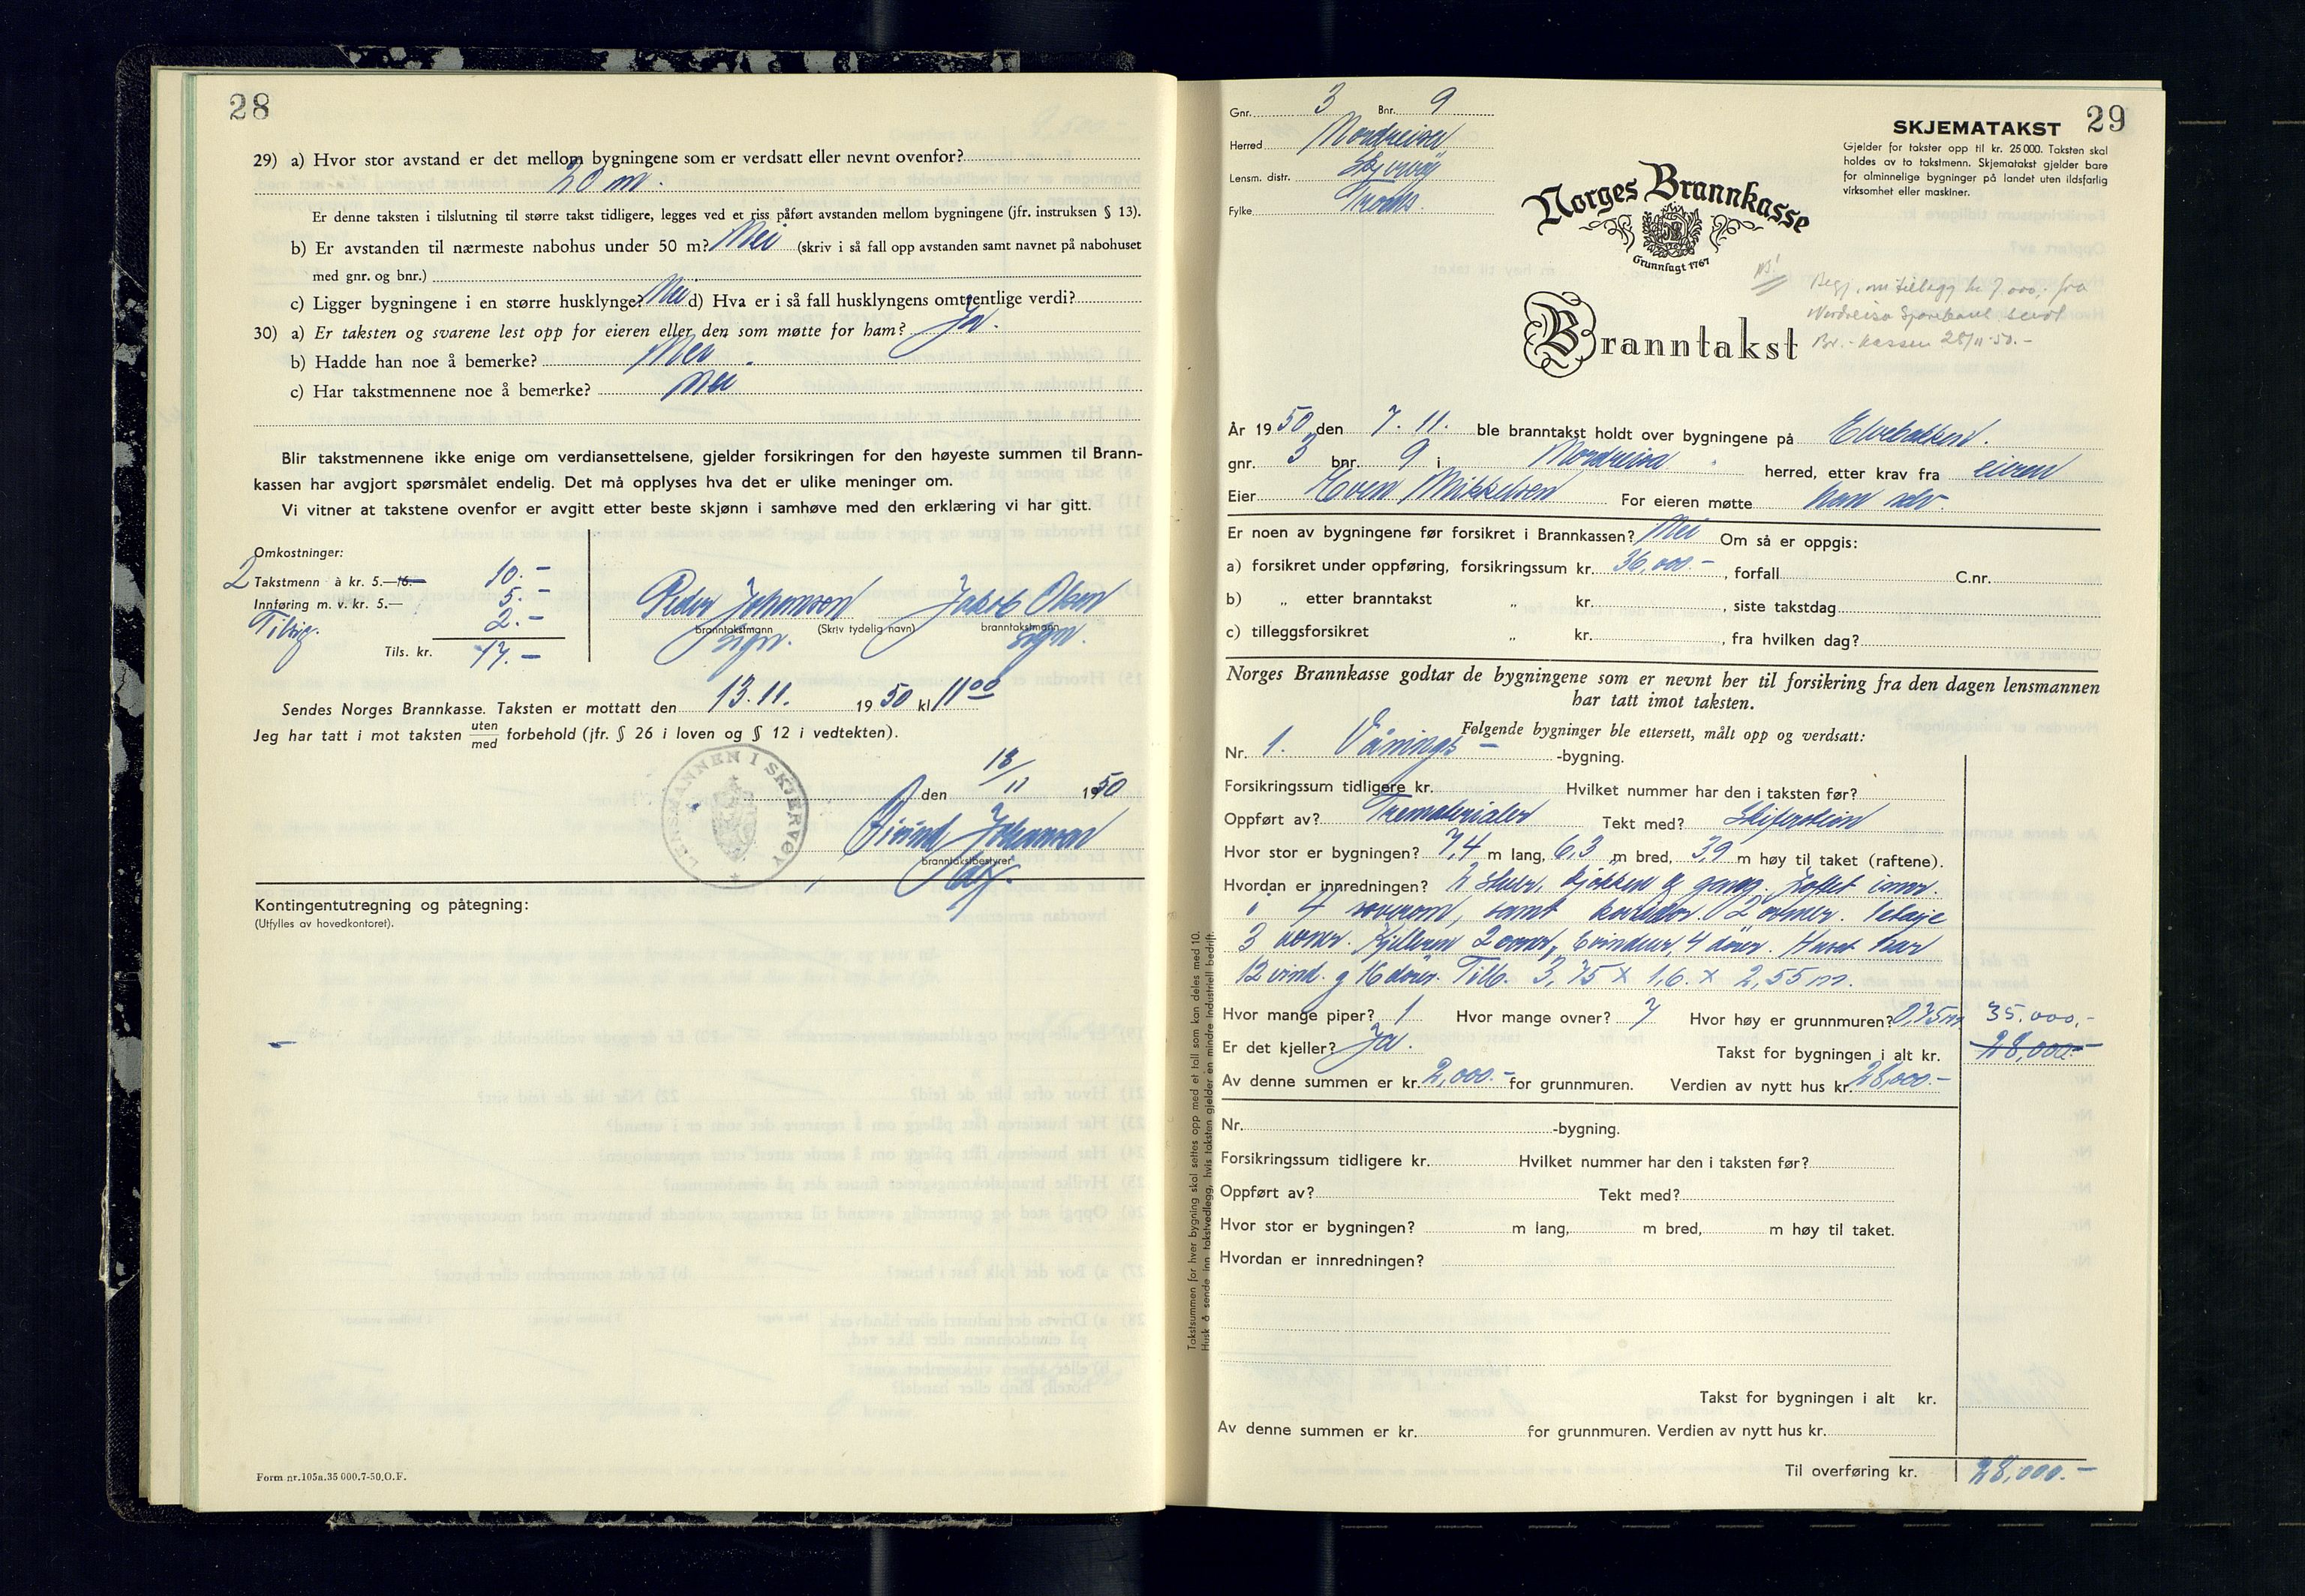 28
29) a) Hvor stor avstand er det mellom bygningene som er verdsatt eller nevnt ovenfor?
20 m.
Er denne taksten i tilslutning til større takst tidligere, legges ved et riss påført avstanden mellom bygningene (jfr. instruksen § 13).
b) Er avstanden til nærmeste nabohus under 50 m? Nei (skriv i så fall opp avstanden samt navnet på nabohuset
med gnr. og bnr.)
c) Ligger bygningene i en større husklynge? Nei d) Hva er i så fall husklyngens omtrentlige verdi?
30) a) Er taksten og svarene lest opp for eieren eller den som møtte for ham? Ja.
b) Hadde han noe å bemerke? Nei.
c) Har takstmennene noe å bemerke? Nei
Blir takstmennene ikke enige om verdiansettelsene, gjelder forsikringen for den høyeste summen til Brann-
kassen har avgjort spørsmålet endelig. Det må opplyses hva det er ulike meninger om.
Vi vitner at takstene ovenfor er avgitt etter beste skjønn i samhøve med den erklæring vi har gitt.
Omkostninger:
2 Takstmenn à kr. 5.—10.— 10.-
Innføring m. v. kr. 5.— 5.-
2.-
Tils. kr. 17.-
Peder Johansen Jakob Olsen
branntakstmann (Skriv tydelig navn) branntakstmann
sign. sign.
Sendes Norges Brannkasse. Taksten er mottatt den 13.11. 1950 kl 11 00
Jeg har tatt i mot taksten uten/med forbehold (jfr. § 26 i loven og § 12 i vedtekten).
LENSMANNEN I SKJERVØY
den 13/11 1950
Øivind Johansen
branntakstbestyrer
Kontingentutregning og påtegning:
(Utfylles av hovedkontoret).
Form nr. 105a. 35 000. 7-50. O. F.
29
Gnr. 3 Bnr. 9
Herred Nordreisa
Lensm. distr. Skjervøy
Fylke Troms.
SKJEMATAKST
Gjelder for takster opp til kr. 25 000. Taksten skal
holdes av to takstmenn. Skjematakst gjelder bare
for alminnelige bygninger på landet uten ildsfarlig
virksomhet eller maskiner.
Norges Brannkasse
Grunnlagt 1767
NB!
Begj. om tillegg kr 7.000,- fra
Nordreisa Sparebank sendt
Br.-kassen 28/11-50.-
Branntakst
År 1950 den 7.11. ble branntakst holdt over bygningene på Elvebakken.
gnr. 3 bnr. 9 i Nordreisa herred, etter krav fra eieren
Eier Hven Mikkelsen For eieren møtte han selv.
Er noen av bygningene før forsikret i Brannkassen? Nei Om så er oppgis:
a) forsikret under oppføring, forsikringssum kr. 36,000.- , forfall C.nr.
b) „ etter branntakst „ kr. , siste takstdag
c) tilleggsforsikret „ kr. , fra hvilken dag?
Norges Brannkasse godtar de bygningene som er nevnt her til forsikring fra den dagen lensmannen
har tatt imot taksten.
Følgende bygninger ble ettersett, målt opp og verdsatt:
Nr. 1. Vånings- -bygning.
Forsikringssum tidligere kr. Hvilket nummer har den i taksten før?
Oppført av? Trematerialer Tekt med? Skiferstein
Hvor stor er bygningen? 7,4 m lang, 6,3 m bred, 3,9 m høy til taket (raftene).
Hvordan er innredningen? 2 stuer, kjøkken og gang. Loftet innr.
i 4 soverom, samt korridor. 2 ovner. 1 etasje
3 ovner. Kjelleren 2 ovner, 6 vinduer, 4 dører. Huset har
12 vind. og 16 dører. Tilb. 3,75 x 1,6. x 2,55 m.
Hvor mange piper? 1 Hvor mange ovner? 7 Hvor høy er grunnmuren? 0,35m 35.000,-
Er det kjeller? Ja. Takst for bygningen i alt kr. 28,000.-
Av denne summen er kr. 2,000.- for grunnmuren. Verdien av nytt hus kr. 28,000.-
Nr. -bygning.
Forsikringssum tidligere kr. Hvilket nummer har den i taksten før?
Oppført av? Tekt med?
Hvor stor er bygningen? m lang, m bred, m høy til taket.
Hvordan er innredningen?
Takst for bygningen i alt kr.
Av denne summen er kr. for grunnmuren. Verdien av nytt hus kr.
Til overføring kr. 28,000.-
Takstsummen for hver bygning skal settes opp med et tall som kan deles med 10.
Husk å sende inn takstvedlegg, hvis taksten gjelder en mindre industriell bedrift.